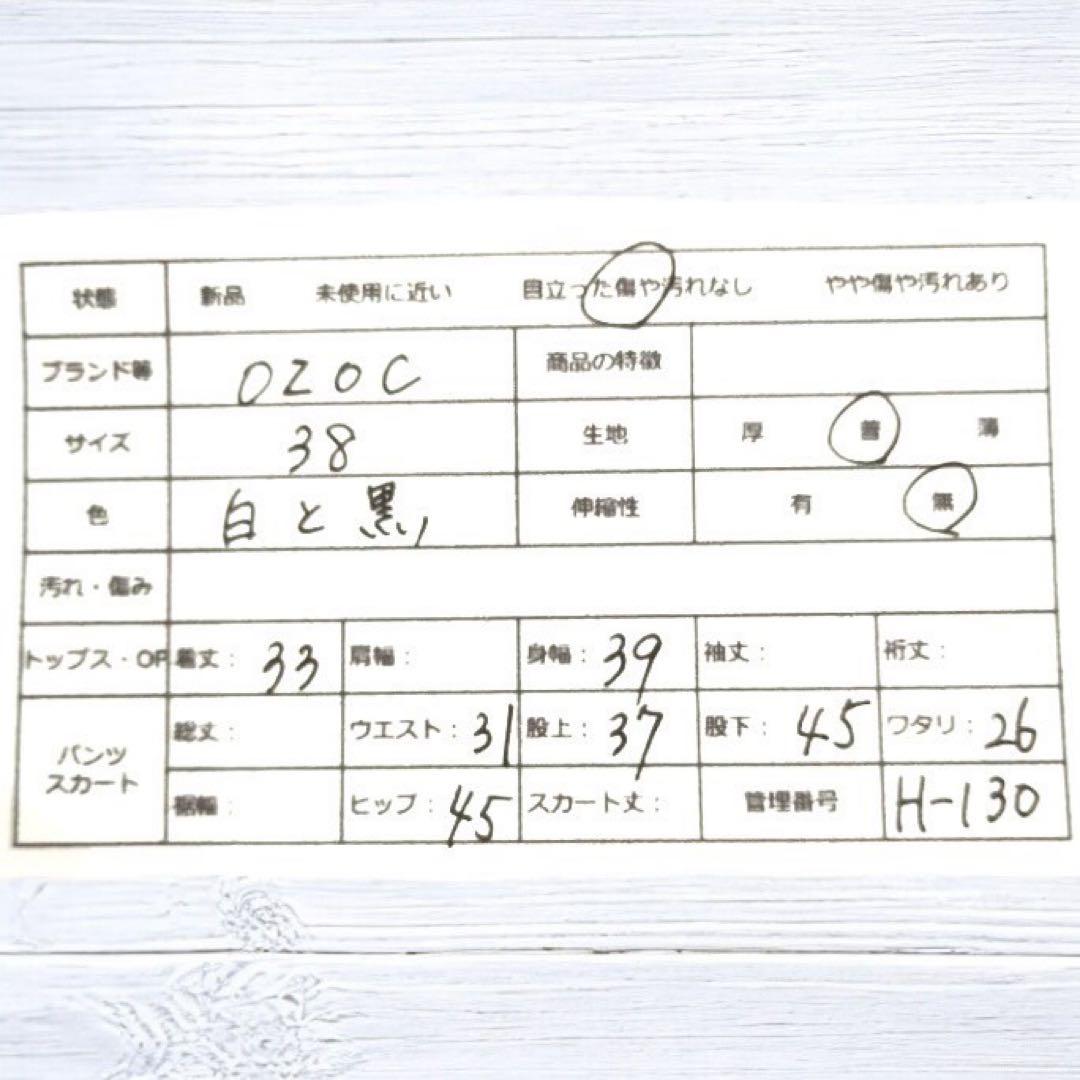 状態 新品 未使用に近い 目立った傷や汚れなし やや傷や汚れあり
ブランド等 OZOC 商品の特徴
サイズ 38 生地 厚 普 薄
色 白と黒 伸縮性 有 無
汚れ・傷み
トップス・OP 着丈: 33 肩幅: 身幅: 39 袖丈: 裄丈:
パンツ スカート 総丈: ウエスト: 31 股上: 37 股下: 45 ワタリ: 26
裾幅: ヒップ: 45 スカート丈: 管理番号 H-130